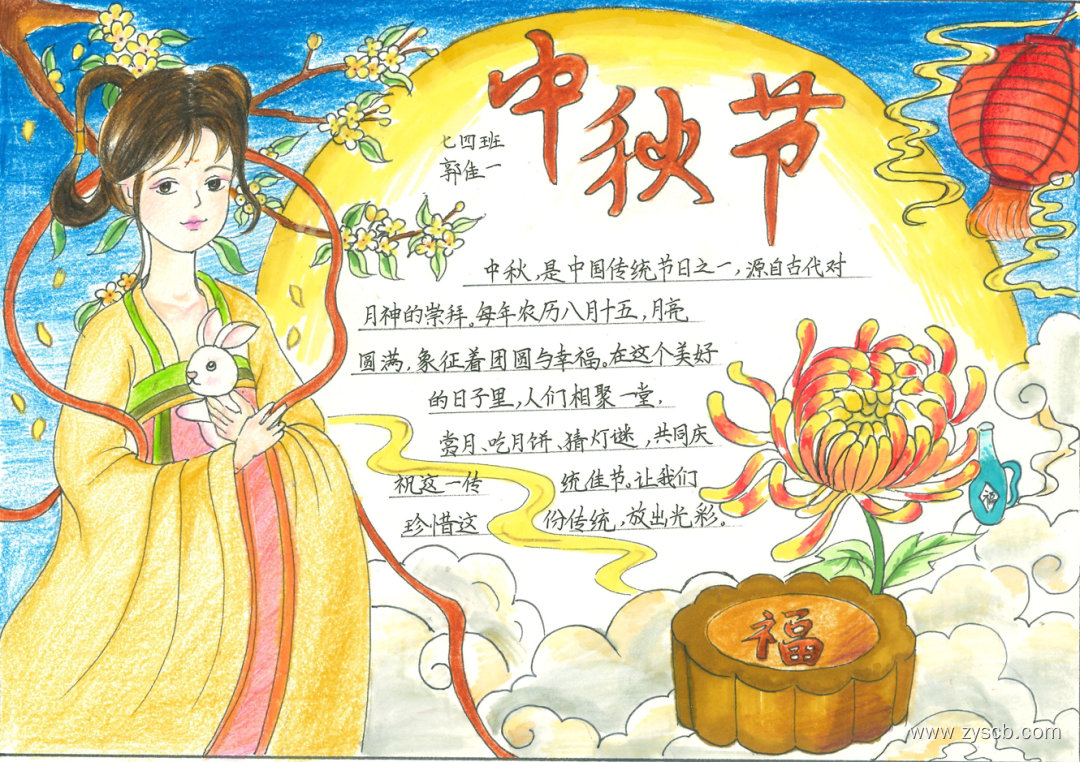 中秋节
七四班
郭佳一
中秋,是中国传统节日之一,源自古代对
月神的崇拜。每年农历八月十五,月亮
圆满,象征着团圆与幸福。在这个美好
的日子里,人们相聚一堂,
赏月、吃月饼、猜灯谜,共同庆
祝这一传统佳节。让我们
珍惜这份传统,放出光彩。
福
福
www.zyscb.com